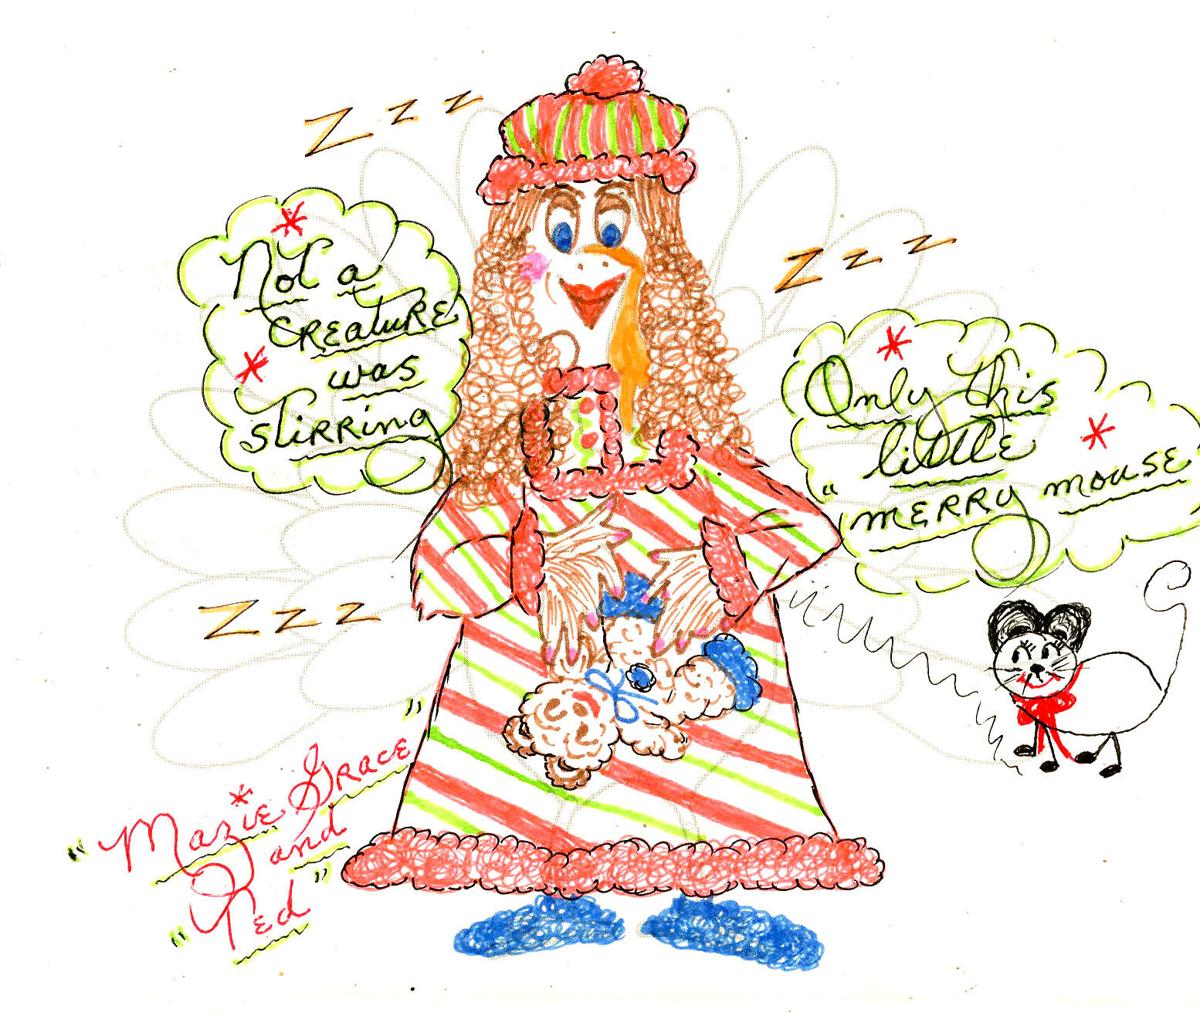 Z z z
Not a
creature
was
stirring
Z z z
Only this
little
"merry mouse"
Z z z
"Mazie Grace"
and
"Ted"